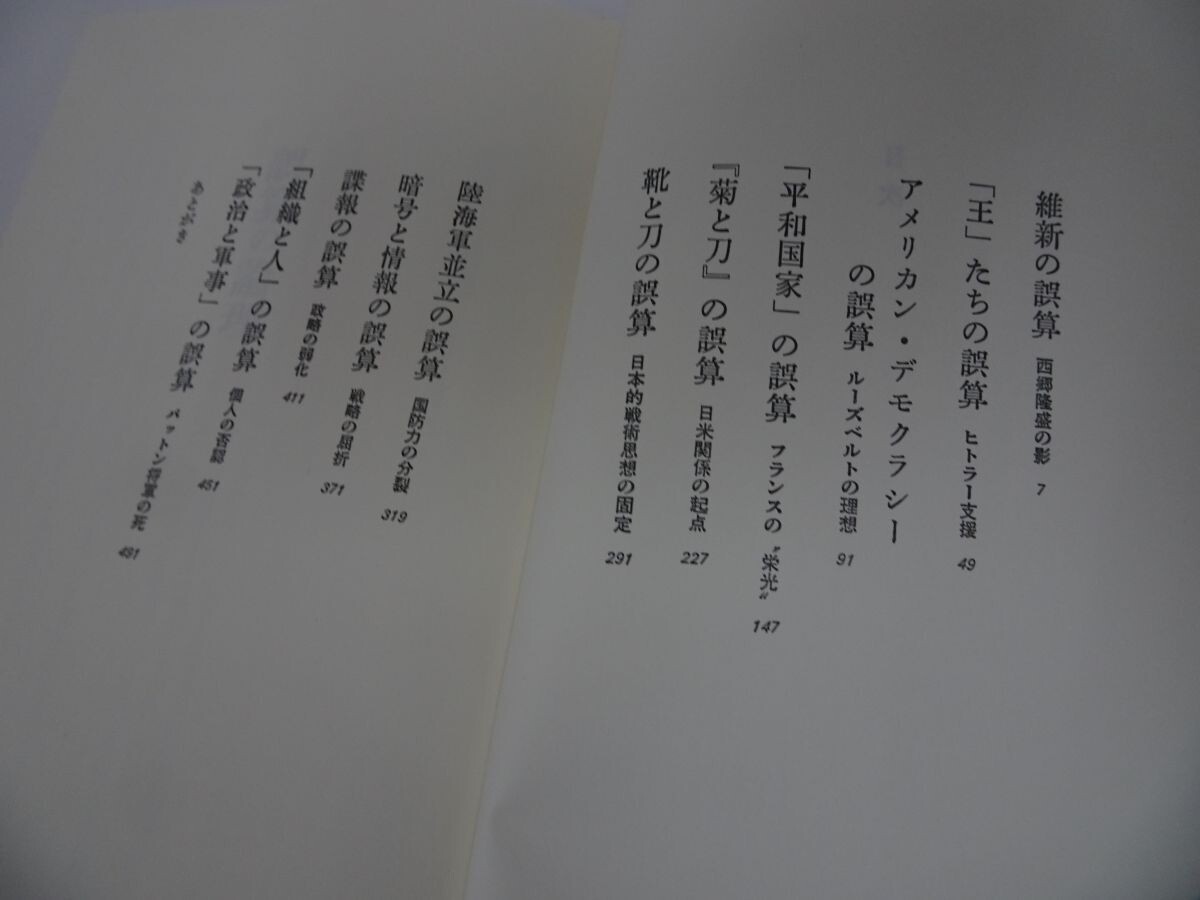 維新の誤算 西郷隆盛の影 7
「王」たちの誤算 ヒトラー支援 49
アメリカン・デモクラシー
の誤算 ルーズベルトの理想 91
「平和国家」の誤算 フランスの〝栄光〟 147
『菊と刀』の誤算 日米関係の起点 227
靴と刀の誤算 日本的戦術思想の固定 291
陸海軍並立の誤算 国防力の分裂 319
暗号と情報の誤算 戦略の屈折 371
諜報の誤算 政略の弱化 411
「組織と人」の誤算 個人の否認 451
「政治と軍事」の誤算 パットン将軍の死 491
あとがき